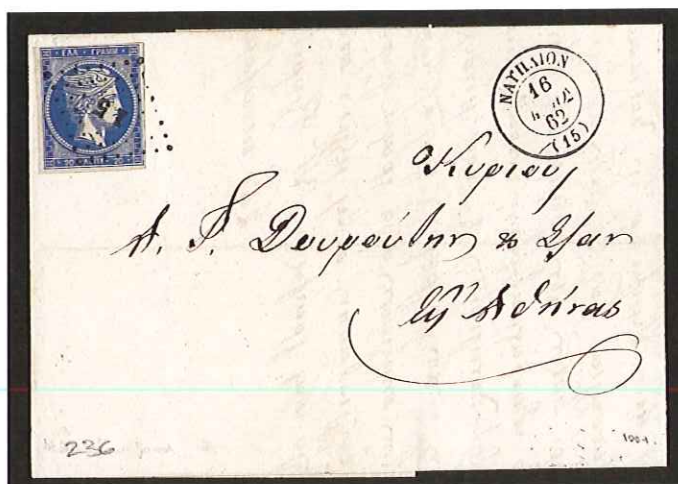 ΕΛΛ. ΓΡΑΜΜ.
20 ΛΕΠΤ. 20
15
ΝΑΥΠΛΙΟΝ
16
62
(15)
Κυρίους
Α. Γ. Δουρούτην & Σ/αν
Εἰς Ἀθήνας
236